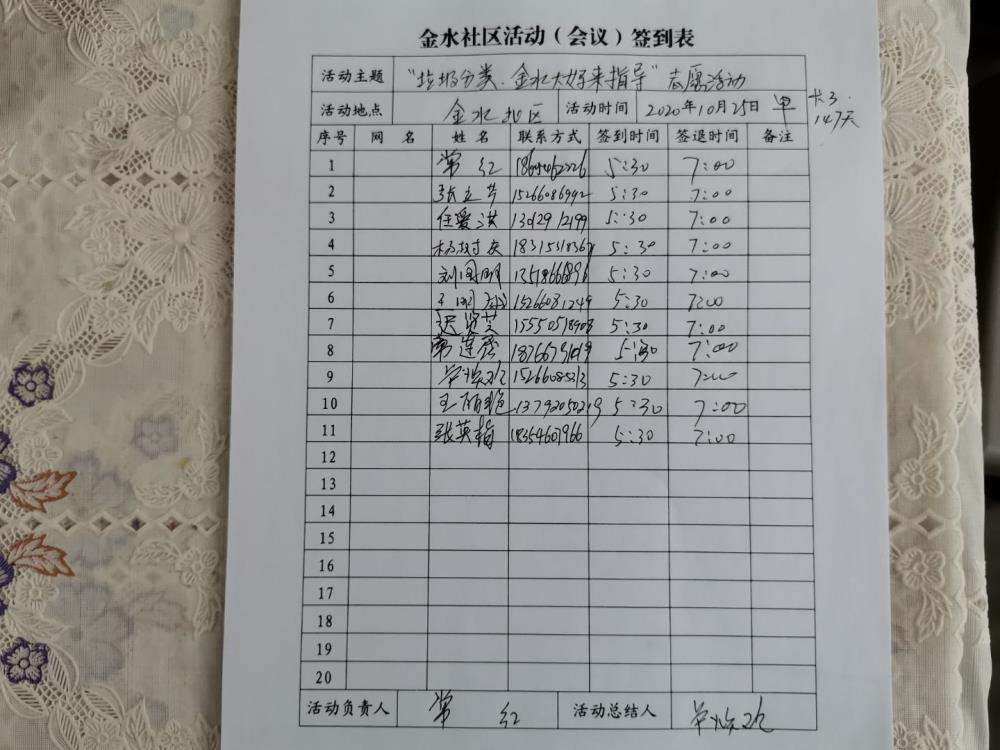 金水社区活动（会议）签到表
活动主题 "垃圾分类.金水大好来指导"志愿活动
活动地点 金水北区 活动时间 2020年10月25日
147天
序号 网 名 姓 名 联系方式 签到时间 签退时间 备注
1 常 红 5:30 7:00
2 15266086992 5:30 7:00
3 任爱洪 13012912199 5:30 7:00
4 5:30 7:00
5 刘国明 5:30 7:00
6 15266081249 5:30 7:00
7 15550518908 5:30 7:00
8 5:30 7:00
9 5:30 7:00
10 13792050219 5:30 7:00
11 张英梅 18354607966 5:30 7:00
12
13
14
15
16
17
18
19
20
活动负责人 常 红 活动总结人